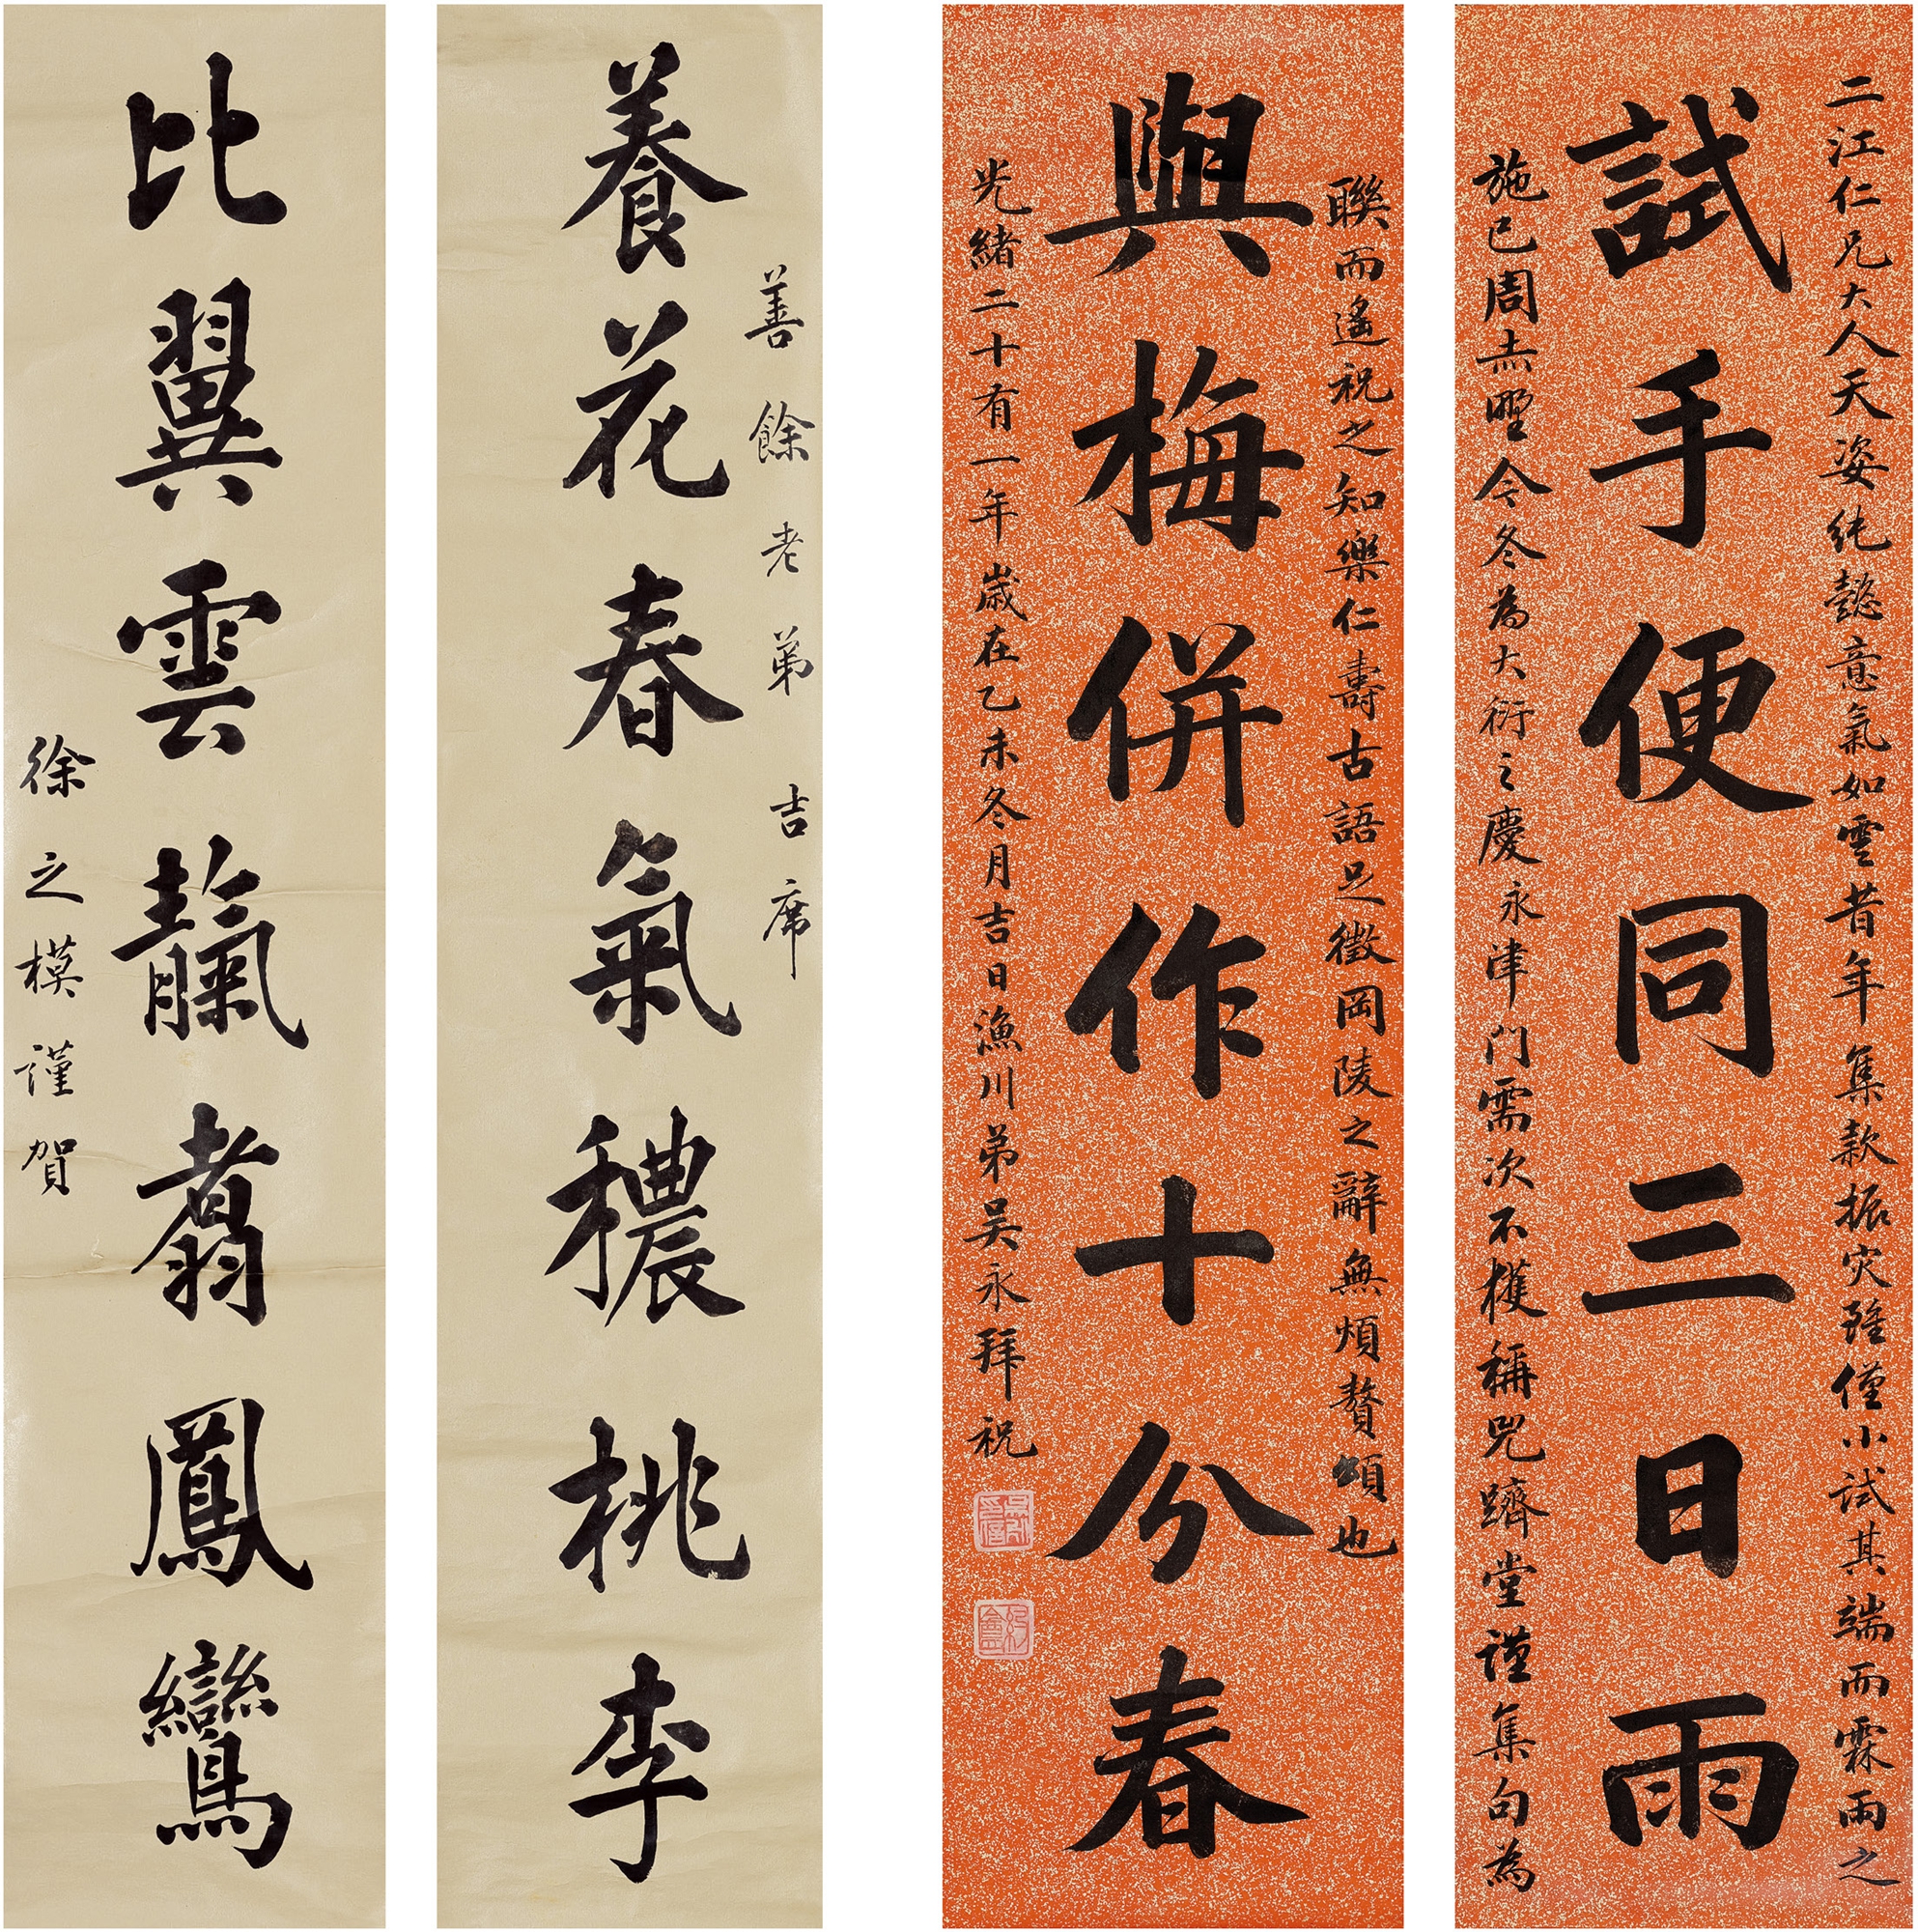 二江仁兄大人天姿純懿意氣如雲昔年集款振灾雖僅小試其端而霖雨之
試手便同三日雨
施已周赤埜今冬為大衍之慶永津門需次不獲稱兕躋堂謹集句為
聯而遙祝之知樂仁壽古語足徵岡陵之辭無煩贅頌也
與梅併作十分春
光緒二十有一年歲在乙未冬月吉日漁川弟吳永拜祝
善餘老弟吉席
養花春氣穠桃李
比翼雲䨠翥鳳鸞
徐之模謹賀